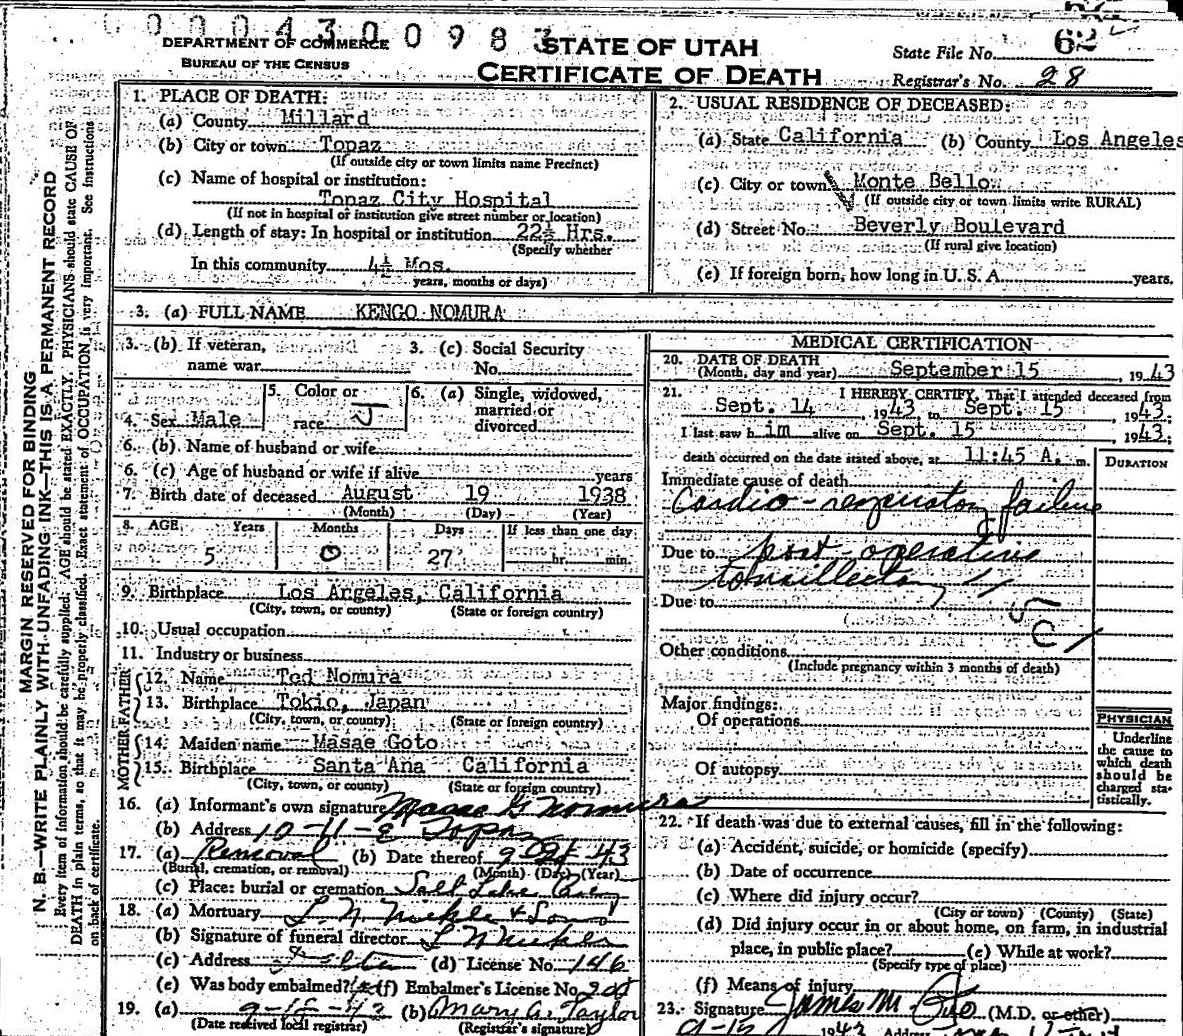 0004300983
DEPARTMENT OF COMMERCE
BUREAU OF THE CENSUS
STATE OF UTAH
CERTIFICATE OF DEATH
State File No. 62
Registrar's No. 28
MARGIN RESERVED FOR BINDING
N. B.—WRITE PLAINLY WITH UNFADING INK—THIS IS A PERMANENT RECORD
Every item of information should be carefully supplied. AGE should be stated EXACTLY. PHYSICIANS should state CAUSE OF
DEATH in plain terms, so that it may be properly classified. Exact statement of OCCUPATION is very important. See instructions
on back of certificate.
1. PLACE OF DEATH:
(a) County Millard
(b) City or town Topaz
(If outside city or town limits name Precinct)
(c) Name of hospital or institution:
Topaz City Hospital
(If not in hospital or institution give street number or location)
(d) Length of stay: In hospital or institution 22½ Hrs.
(Specify whether
In this community 4½ Mos.
years, months or days)
2. USUAL RESIDENCE OF DECEASED:
(a) State California (b) County Los Angeles
(c) City or town Monte Bello
(If outside city or town limits write RURAL)
(d) Street No. Beverly Boulevard
(If rural give location)
(e) If foreign born, how long in U. S. A. years.
3. (a) FULL NAME KENGO NOMURA
3. (b) If veteran,
name war
3. (c) Social Security
No.
4. Sex Male
5. Color or
race J
6. (a) Single, widowed,
married or
divorced
6. (b) Name of husband or wife
6. (c) Age of husband or wife if alive years
7. Birth date of deceased August 19 1938
(Month) (Day) (Year)
8. AGE Years Months Days If less than one day
5 0 27 hr. min.
9. Birthplace Los Angeles, California
(City, town, or county) (State or foreign country)
10. Usual occupation
11. Industry or business
FATHER
12. Name Ted Nomura
13. Birthplace Tokio, Japan
(City, town, or county) (State or foreign country)
MOTHER
14. Maiden name Masae Goto
15. Birthplace Santa Ana California
(City, town, or county) (State or foreign country)
16. (a) Informant's own signature Masae G Nomura
(b) Address 10-11-E Topaz
17. (a) Removal (b) Date thereof 43
(Burial, cremation, or removal) (Month) (Day) (Year)
(c) Place: burial or cremation Salt Lake City
18. (a) Mortuary L. N. Nickle & Sons
(b) Signature of funeral director L N Nickle
(c) Address (d) License No. 146
(e) Was body embalmed? (f) Embalmer's License No.
19. (a) (b) Mary A. Taylor
(Date received local registrar) (Registrar's signature)
MEDICAL CERTIFICATION
20. DATE OF DEATH
(Month, day and year) September 15, 1943
21. I HEREBY CERTIFY, That I attended deceased from
Sept. 14, 1943 to Sept. 15 1943;
I last saw him alive on Sept. 15, 1943;
death occurred on the date stated above, at 11:45 A. m.
DURATION
Immediate cause of death
Cardio-respiratory failure
Due to post-operative
tonsillectomy
Due to
Other conditions
(Include pregnancy within 3 months of death)
Major findings:
Of operations
Of autopsy
PHYSICIAN
Underline
the cause to
which death
should be
charged sta-
tistically.
22. If death was due to external causes, fill in the following:
(a) Accident, suicide, or homicide (specify)
(b) Date of occurrence
(c) Where did injury occur?
(City or town) (County) (State)
(d) Did injury occur in or about home, on farm, in industrial
place, in public place? (e) While at work?
(Specify type of place)
(f) Means of injury
23. Signature James M (M.D. or other)
1943 Address